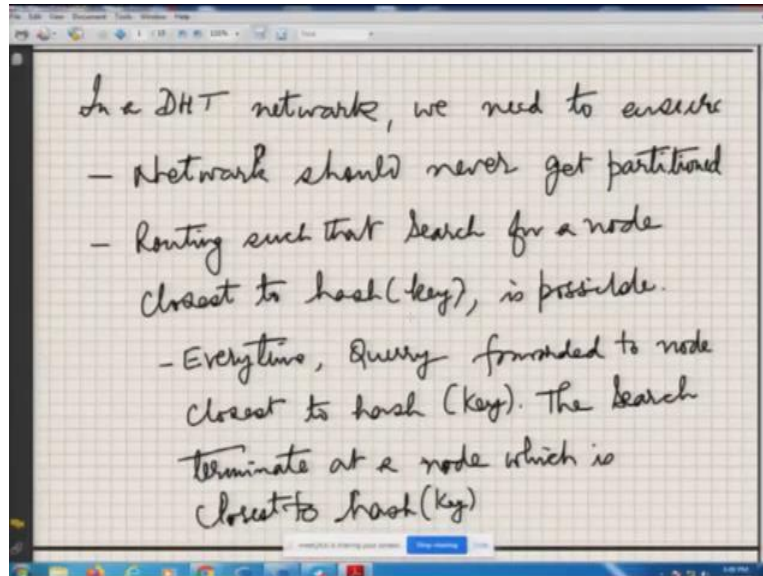 File Edit View Document Tools Window Help
In a DHT network, we need to ensure
– Network should never get partitioned
– Routing such that Search for a node
closest to hash(key), is possible.
– Everytime, Query forwarded to node
closest to hash (key). The Search
terminate at a node which is
closest to hash(key)
is sharing your screen. Stop sharing Hide